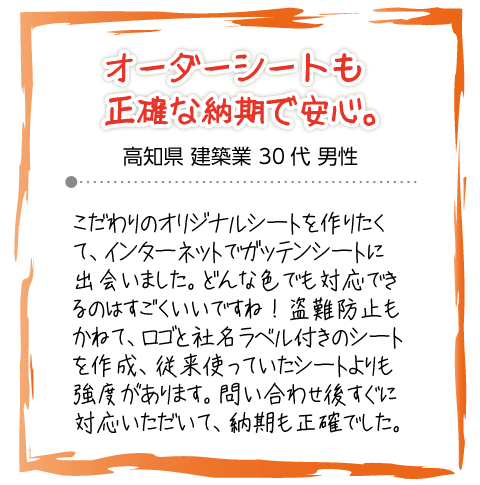 オーダーシートも
正確な納期で安心。
高知県 建築業 30代 男性
こだわりのオリジナルシートを作りたく
て、インターネットでガッテンシートに
出会いました。どんな色でも対応でき
るのはすごくいいですね！盗難防止も
かねて、ロゴと社名ラベル付きのシート
を作成、従来使っていたシートよりも
強度があります。問い合わせ後すぐに
対応いただいて、納期も正確でした。